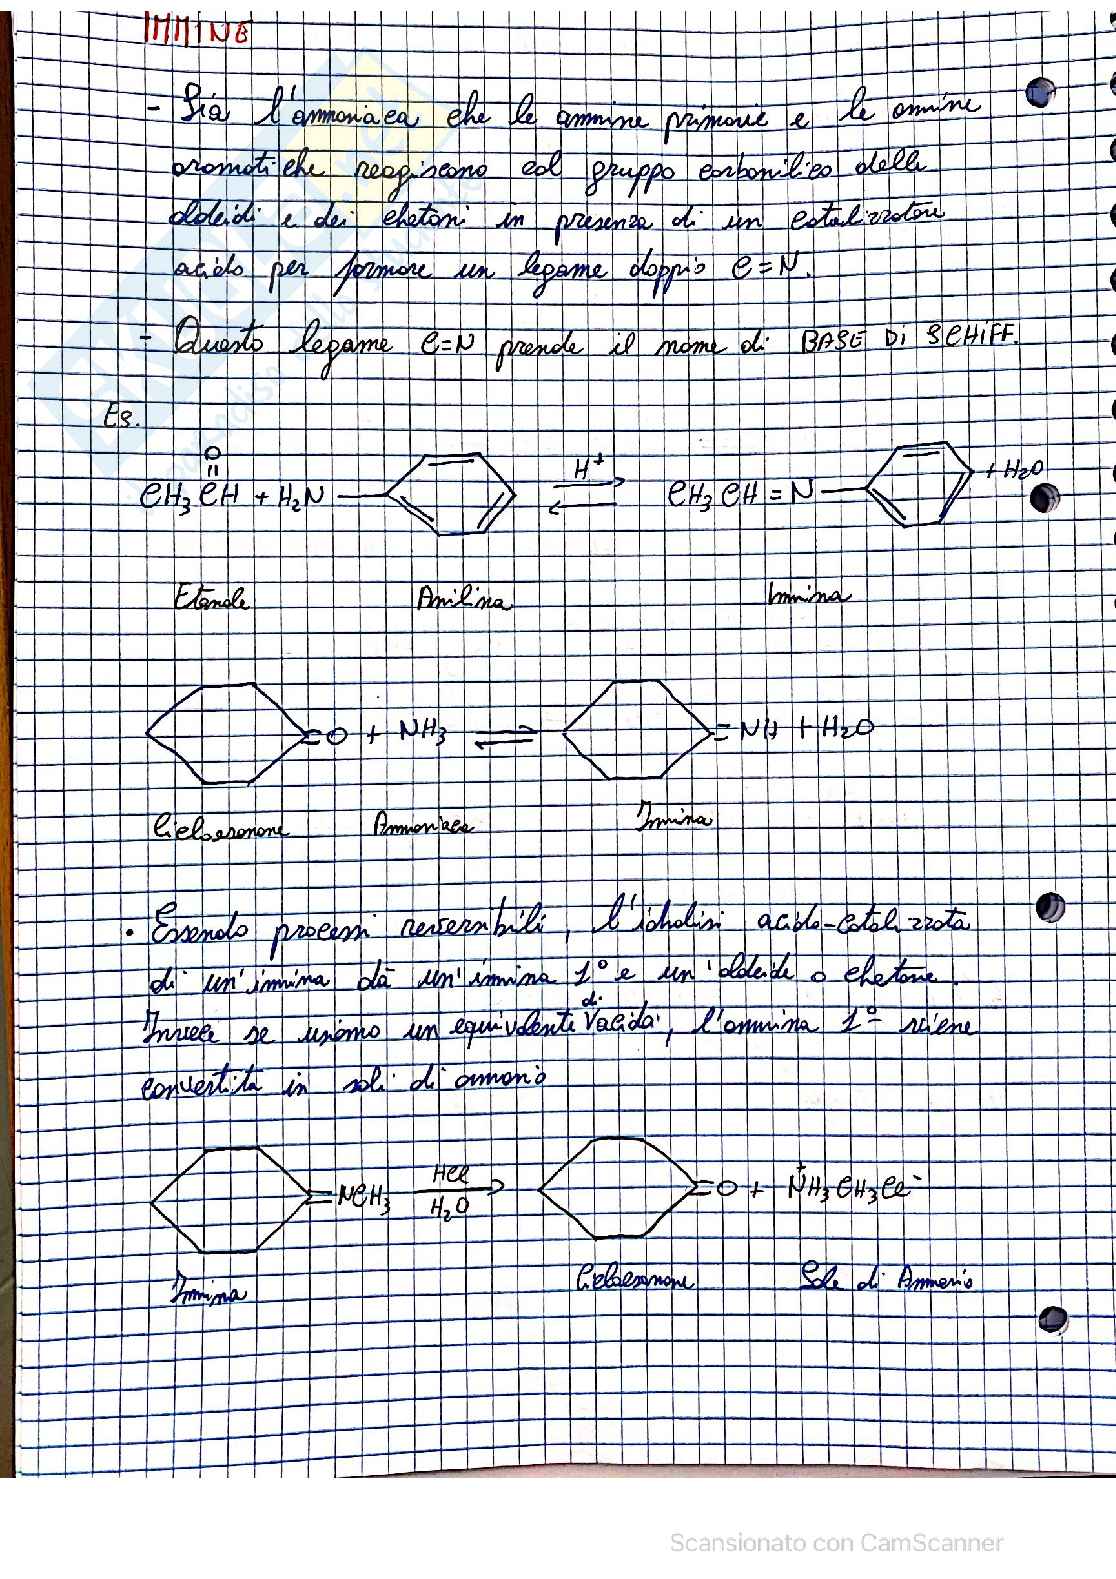 IMMINE
- Sia l'ammoniaca che le ammine primarie e le ammine
aromatiche reagiscono col gruppo carbonilico delle
aldeidi e dei chetoni in presenza di un catalizzatore
acido per formare un legame doppio C=N.
- Questo legame C=N prende il nome di BASE DI SCHIFF.
Es.
O
CH₃CH + H₂N H⁺ CH₃CH = N + H₂O
Etanale Anilina Immina
=O + NH₃ =NH + H₂O
Cicloesanone Ammoniaca Immina
• Essendo processi reversibili, l'idrolisi acido-catalizzata
di un'immina dà un'immina 1° e un'aldeide o chetone.
Invece se usiamo un equivalente di acido, l'ammina 1° viene
convertita in sali di amonio
=NCH₃ HCl =O + N⁺H₃CH₃Cl⁻
H₂O
Immina Cicloesanone Sale di Ammonio
Scansionato con CamScanner